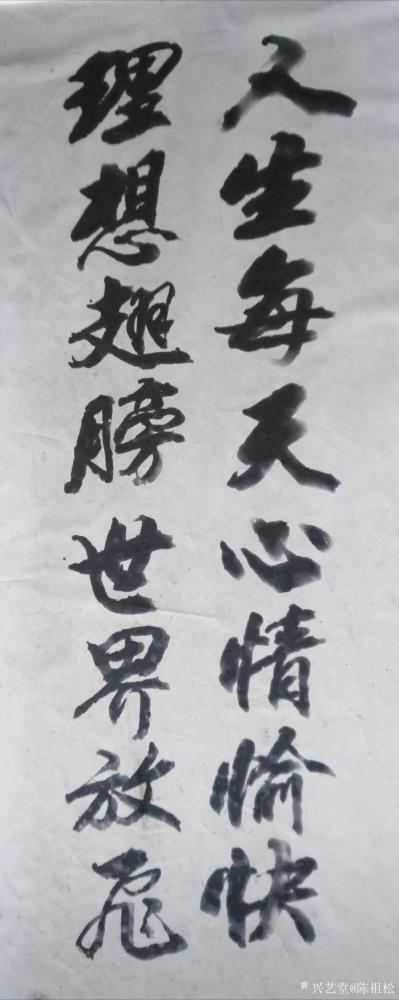 人生每天心情愉快
理想翅膀世界放飛
兴艺堂@陈祖松